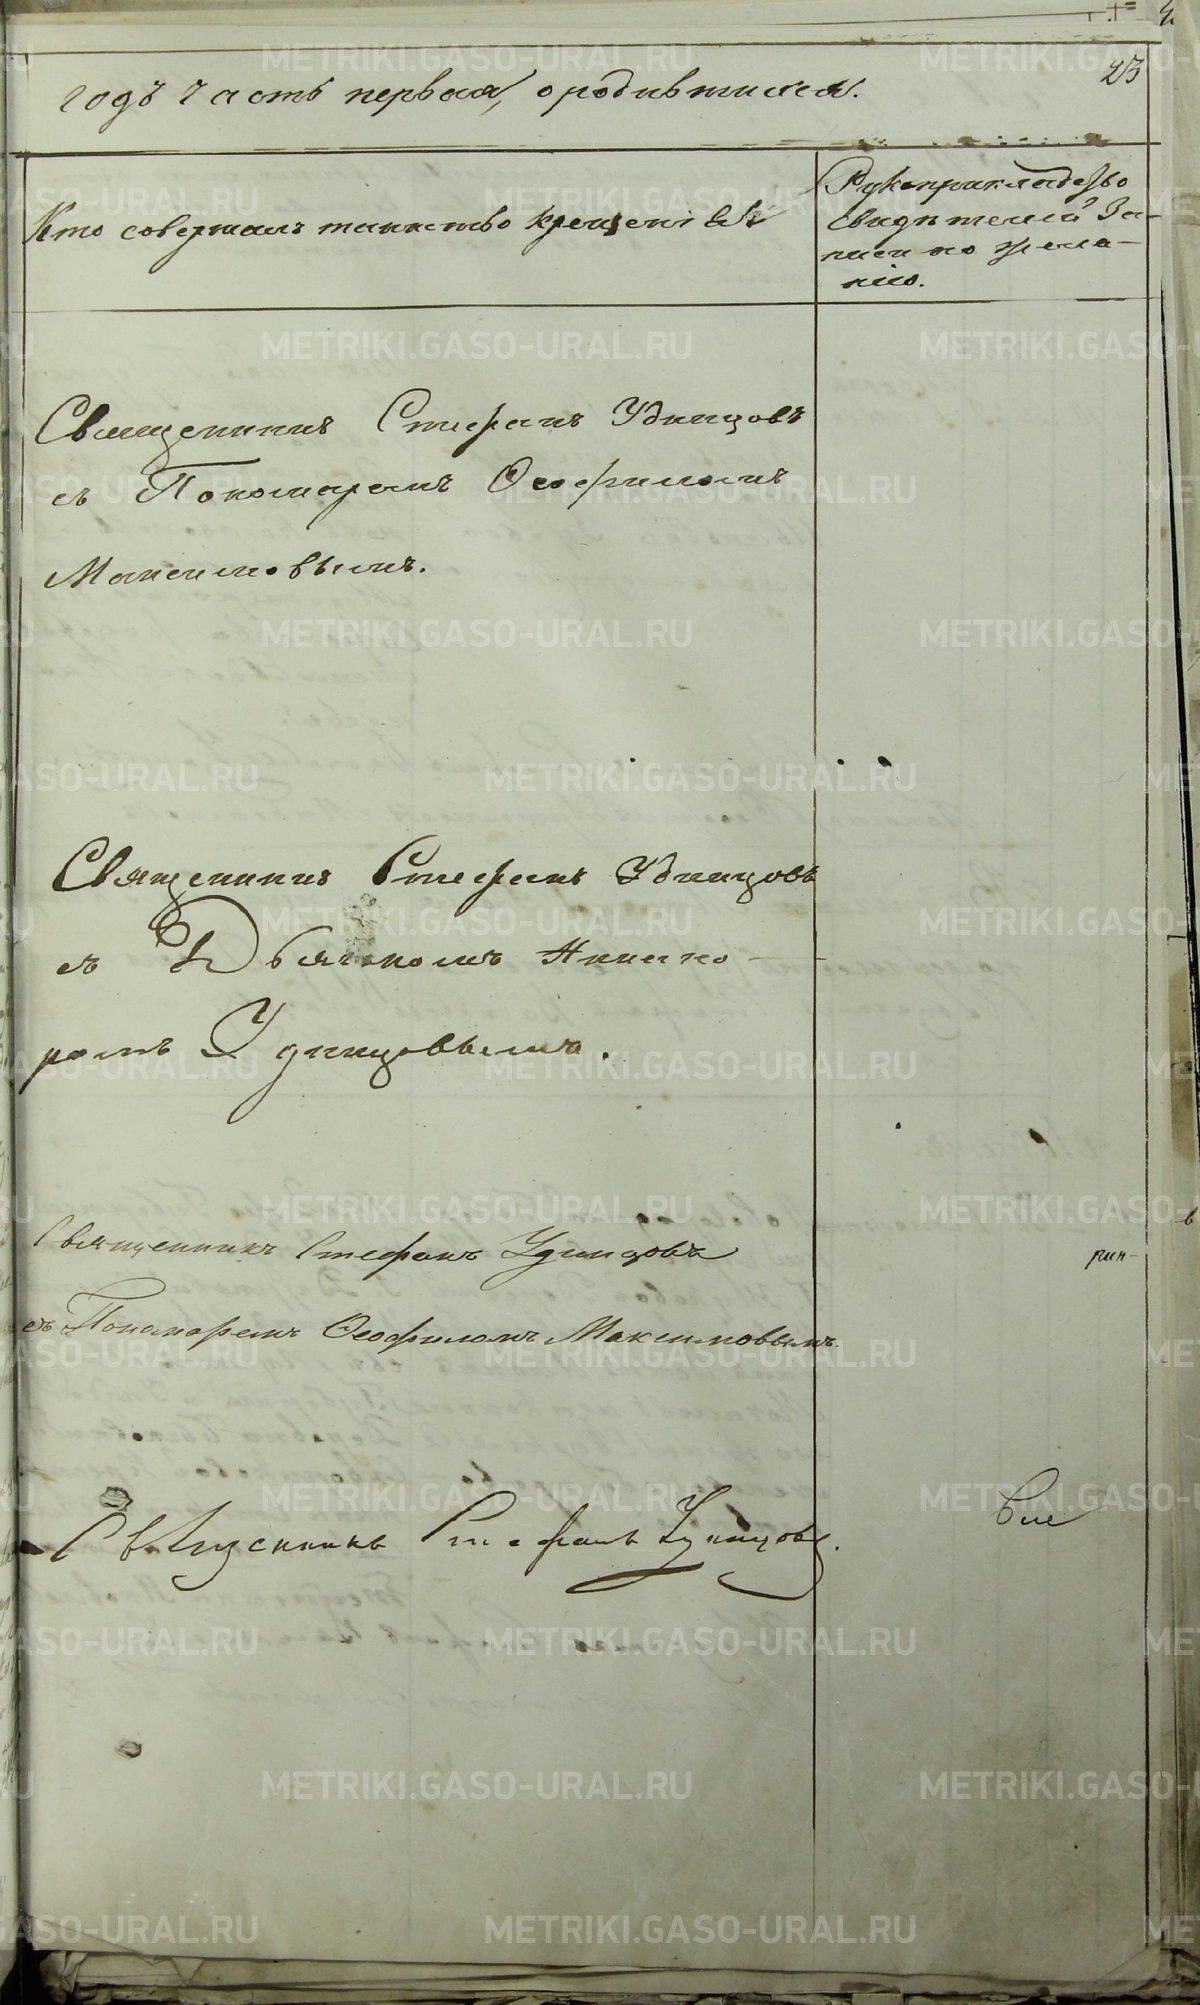 23
годъ часть первая, о родившихся.
Кто совершалъ таинство крещенія
Рукоприкладство
свидѣтелей за-
писи по жела-
нію.
Священникъ Стефанъ Удинцовъ
съ Пономаремъ Ѳеофиломъ
Максимовымъ.
Священникъ Стефанъ Удинцовъ
съ Дьячкомъ Никано-
ромъ Удинцовымъ.
Священникъ Стефанъ Удинцовъ
съ Пономаремъ Ѳеофиломъ Максимовымъ.
Священникъ Стефанъ Удинцовъ.
METRIKI.GASO-URAL.RU